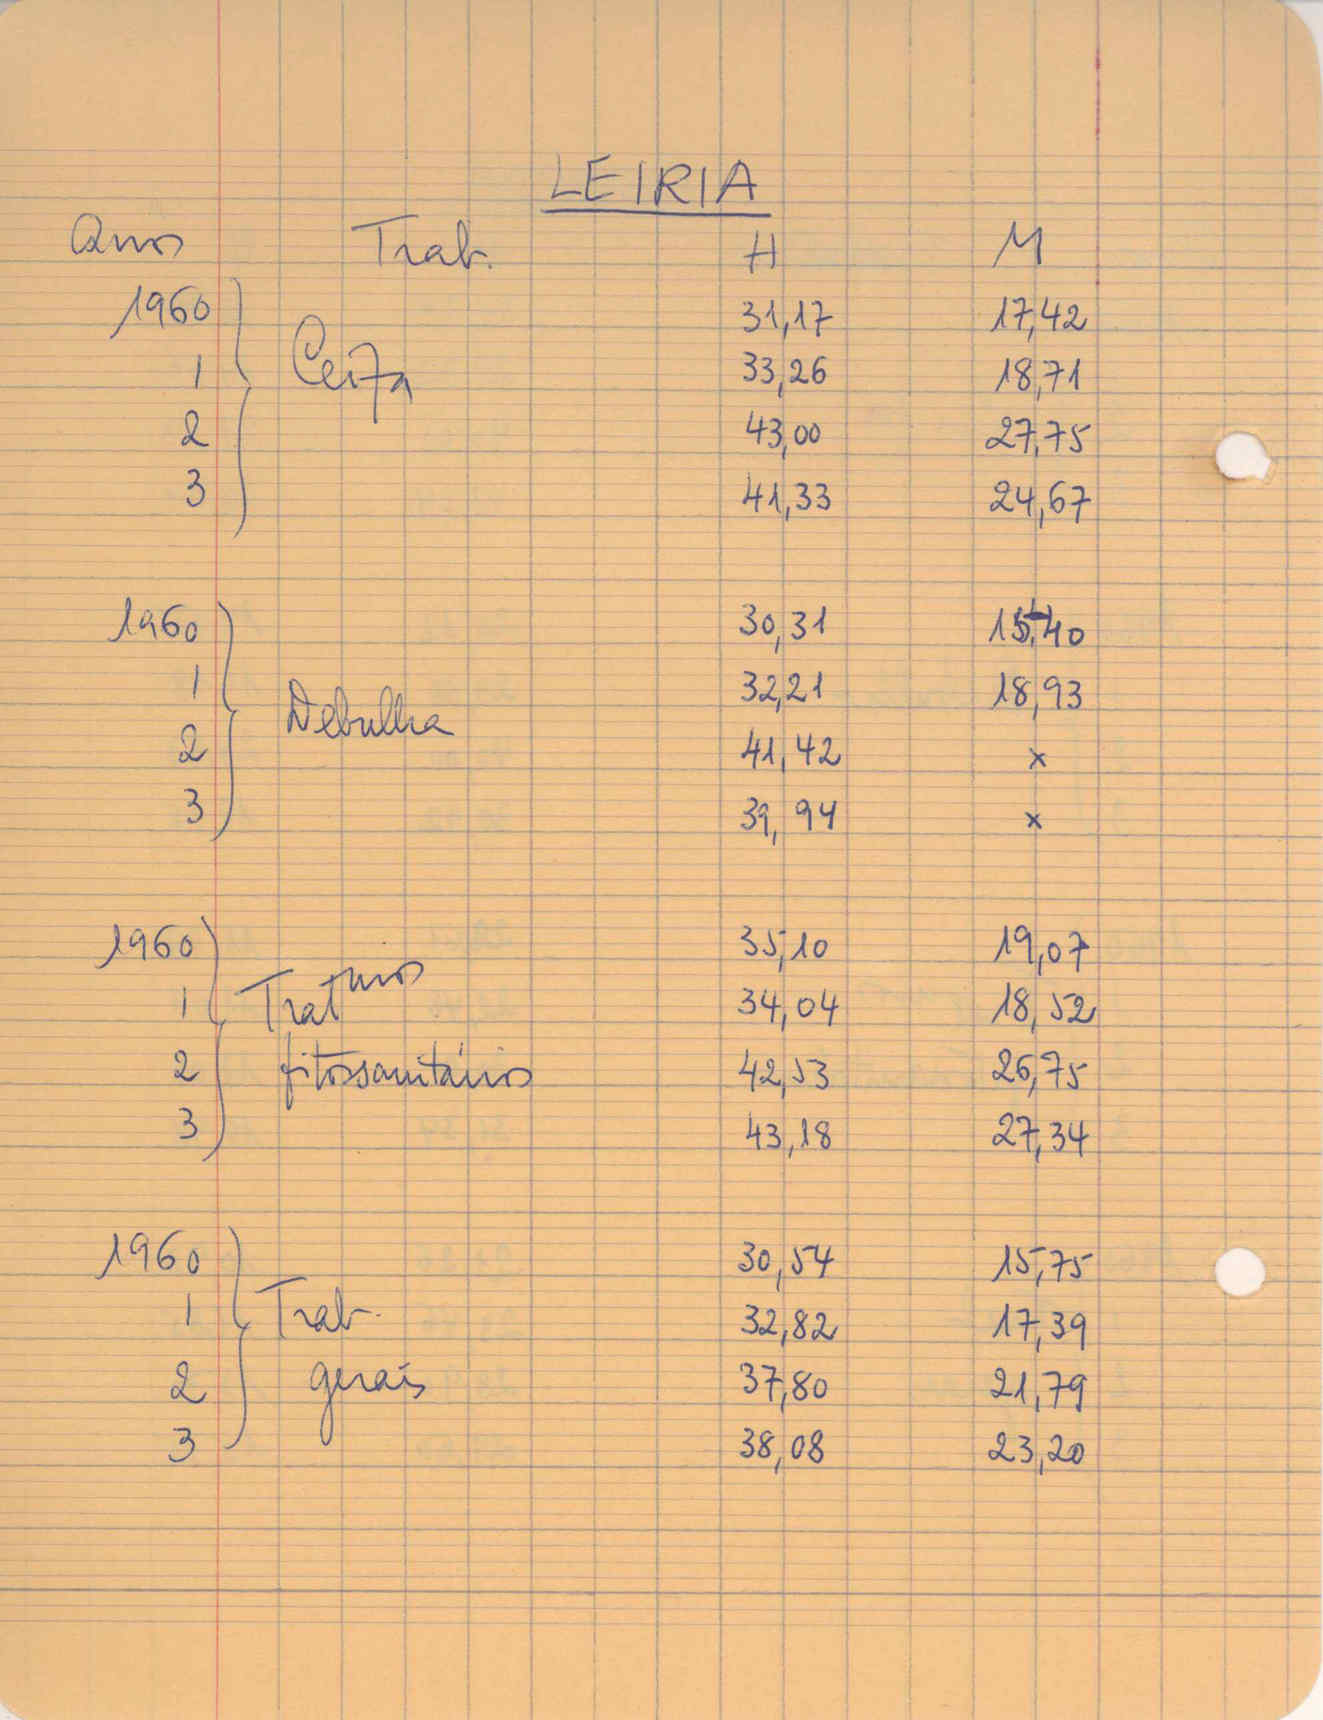 LEIRIA
Anos Trab. H M
1960 31,17 17,42
1 Ceifa 33,26 18,71
2 43,00 27,75
3 41,33 24,67
1960 30,31 15,40
1 Debulha 32,21 18,93
2 41,42 x
3 39,94 x
1960 35,10 19,07
1 Tratmos 34,04 18,52
2 fitossanitários 42,53 26,75
3 43,18 27,34
1960 30,54 15,75
1 Trab. 32,82 17,39
2 gerais 37,80 21,79
3 38,08 23,20